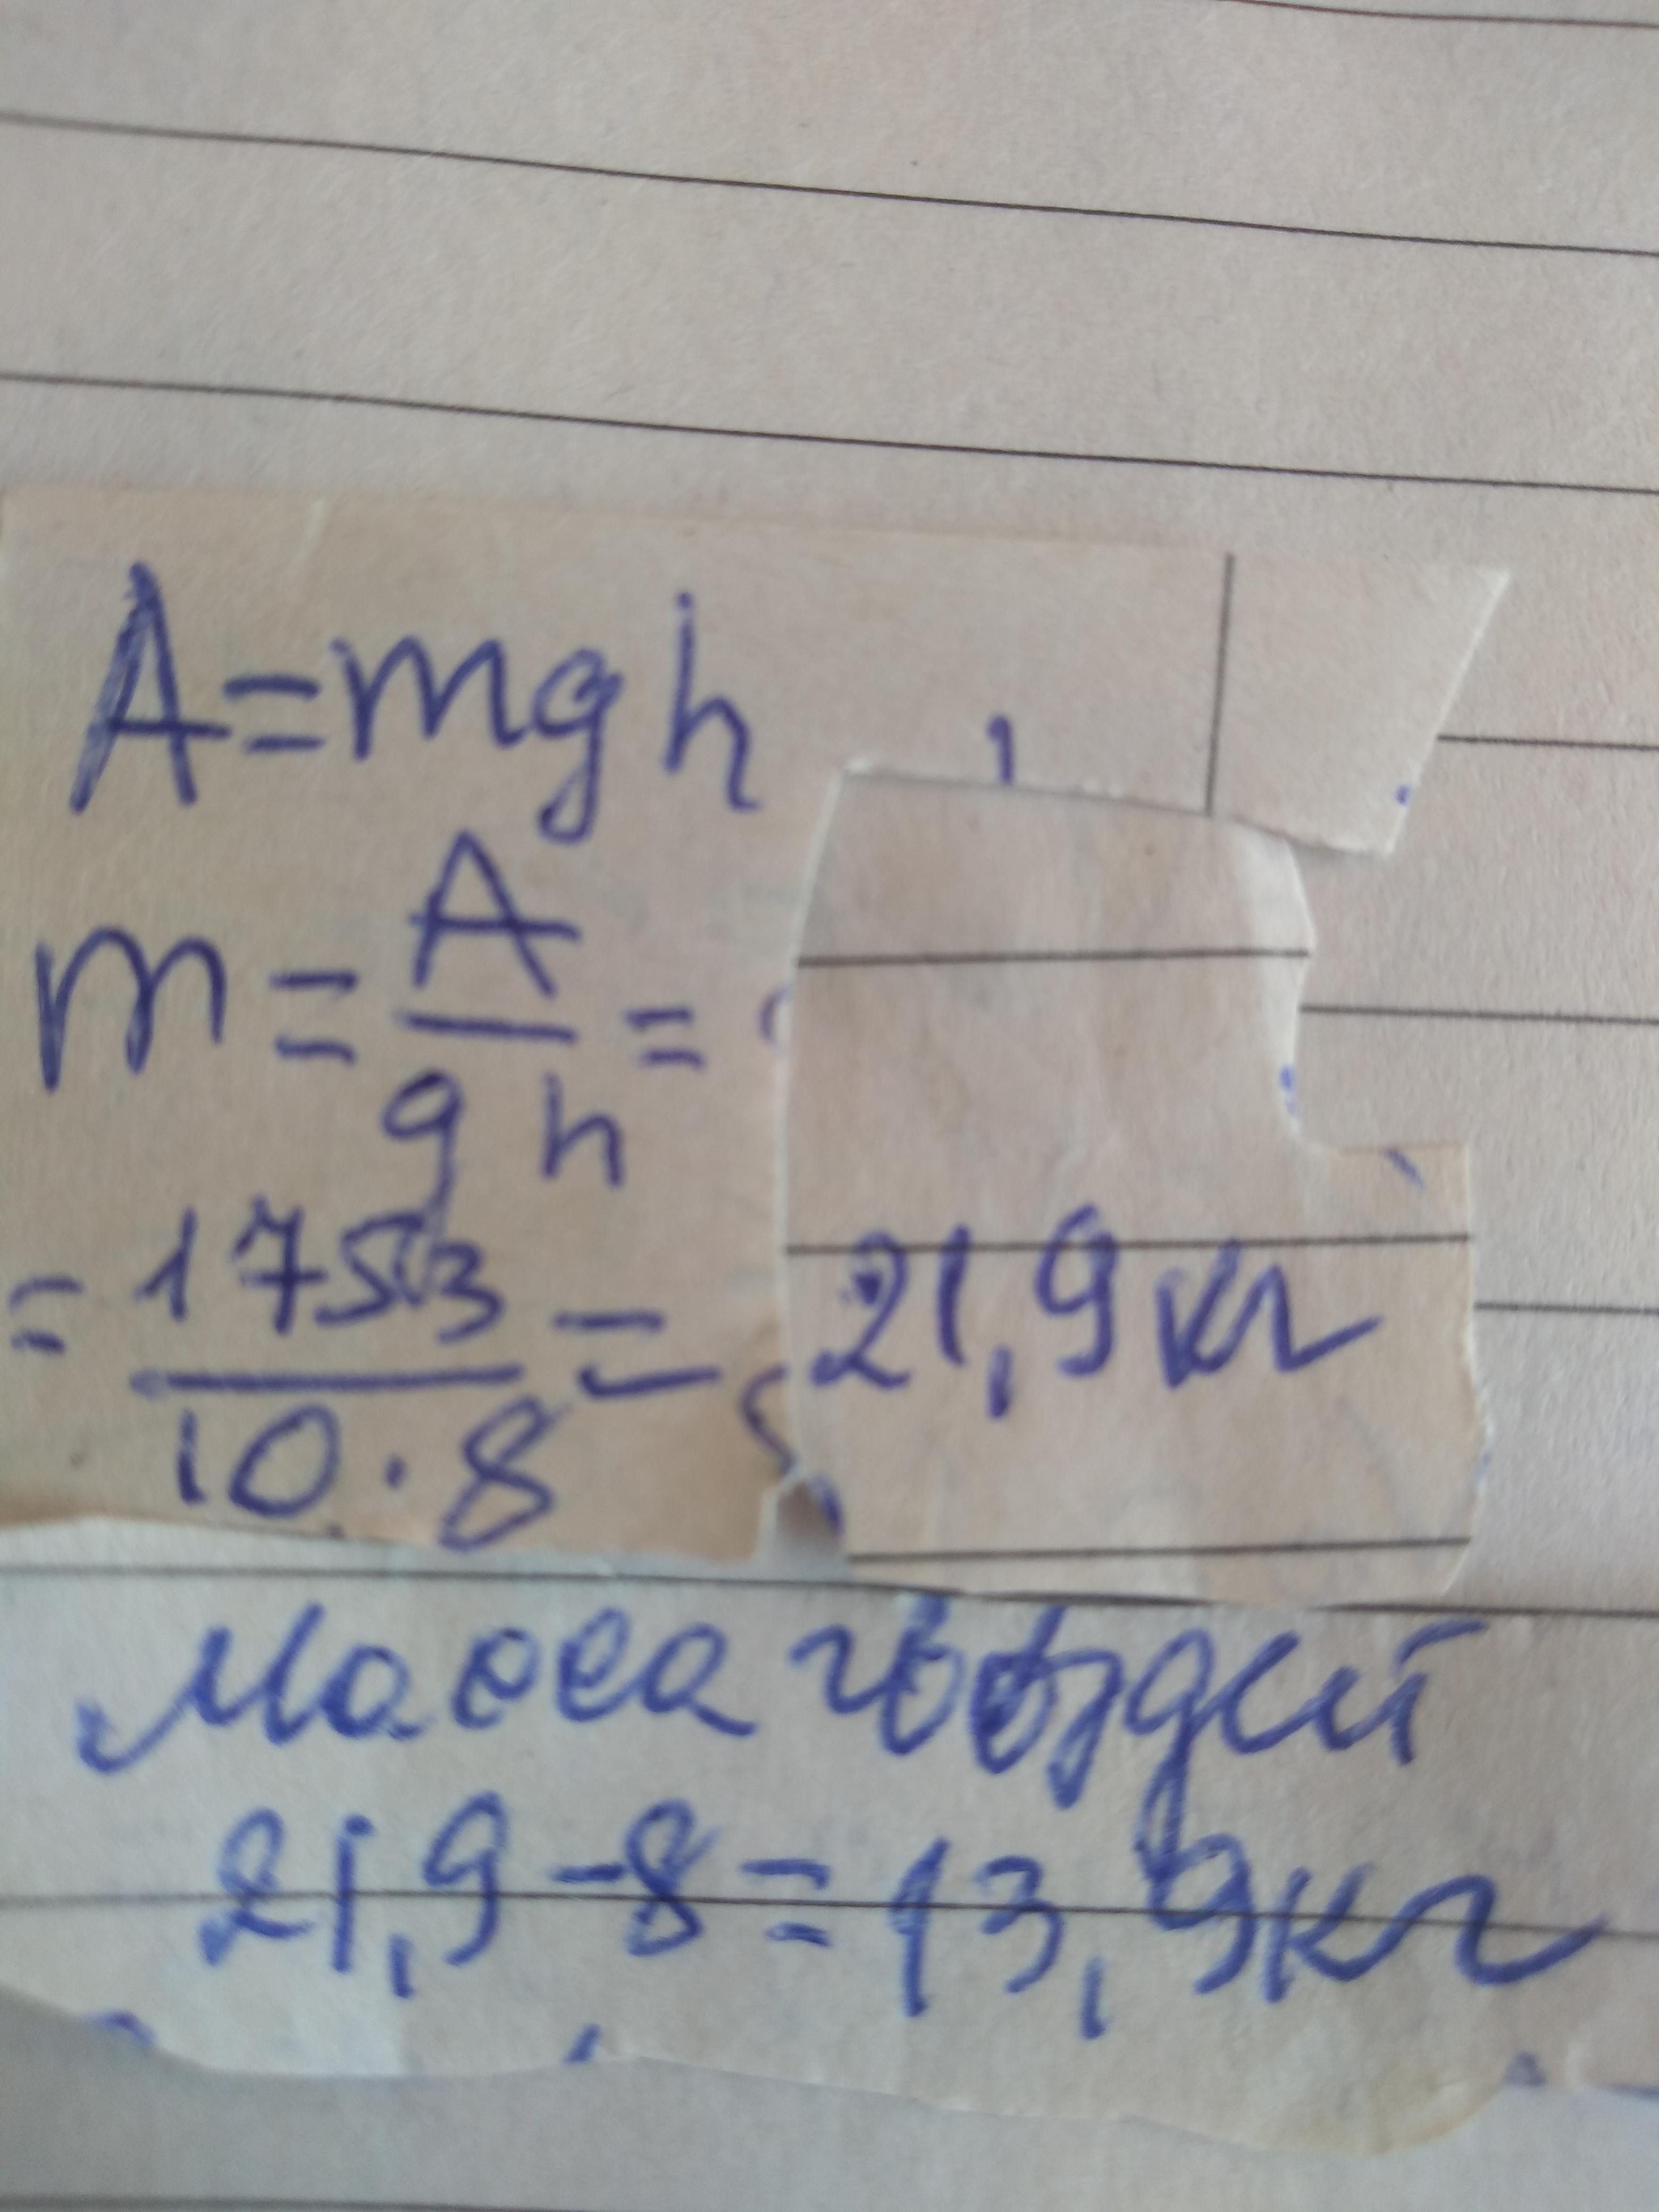 A=mgh
m=A/gh=
=1753/10·8= 21,9 кг
Масса гвоздей
21,9-8=13,9кг